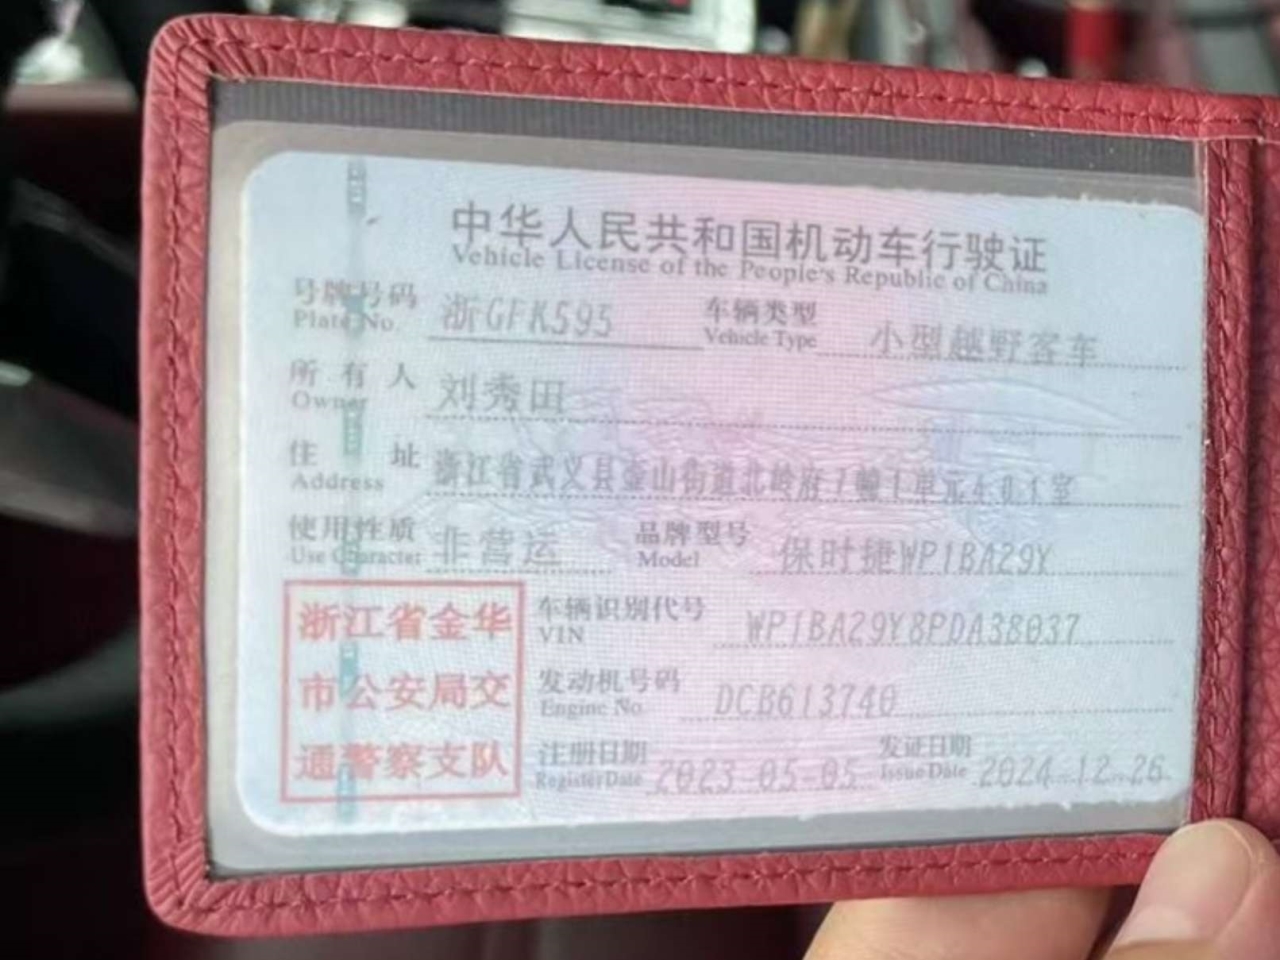 中华人民共和国机动车行驶证
Vehicle License of the People's Republic of China
号牌号码 浙GFK595 车辆类型 小型越野客车
Plate No. Vehicle Type
所有人 刘秀田
Owner
住址 浙江省武义县壶山街道北岭府7幢1单元401室
Address
使用性质 非营运 品牌型号 保时捷WP1BA29Y
Use Character Model
浙江省金华
市公安局交
通警察支队
车辆识别代号 WP1BA29Y8PDA38037
VIN
发动机号码 DCB613740
Engine No.
注册日期 2023-05-05 发证日期 2024-12-26
Register Date Issue Date